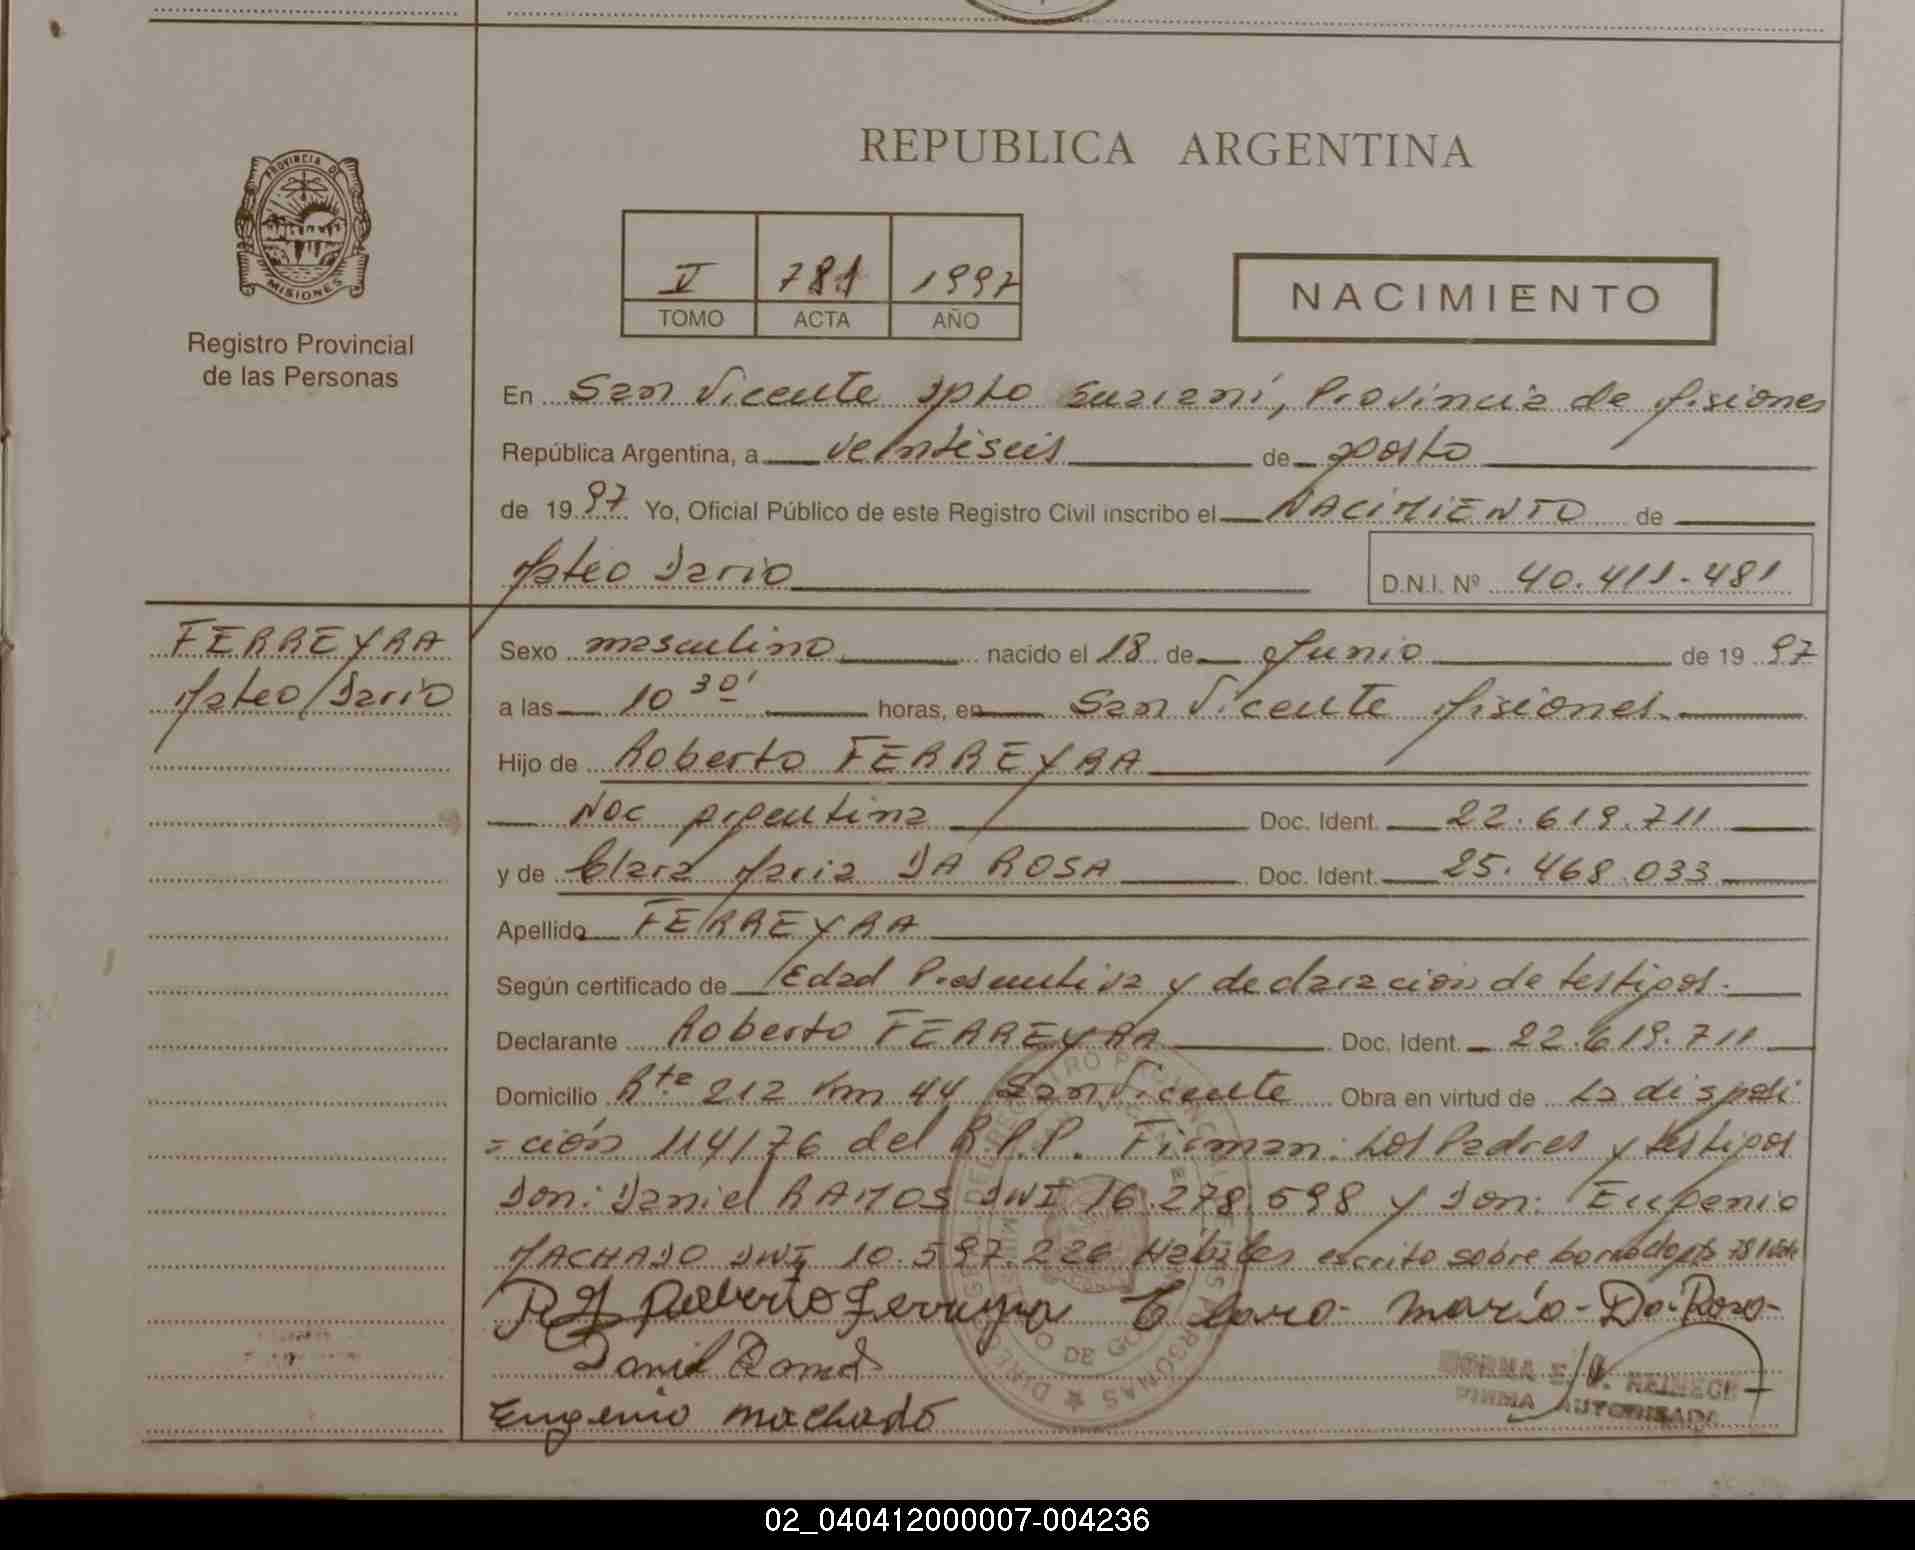 REPUBLICA ARGENTINA
PROVINCIA DE
MISIONES
Registro Provincial
de las Personas
V 781 1997
TOMO ACTA AÑO
NACIMIENTO
En San Vicente Dpto Guaraní, Provincia de Misiones
República Argentina, a veintiseis de Agosto
de 1997 Yo, Oficial Público de este Registro Civil inscribo el NACIMIENTO de
Mateo Dario D.N.I. Nº 40.411.481
FERREYRA
Mateo Dario
Sexo masculino nacido el 18 de Junio de 1997
a las 10 30' horas, en San Vicente Misiones.
Hijo de Roberto FERREYRA
Nac Argentina Doc. Ident. 22.619.711
y de Clara Maria DA ROSA Doc. Ident. 25.468.033
Apellido FERREYRA
Según certificado de Edad Presuntiva y declaración de testigos.
Declarante Roberto FERREYRA Doc. Ident. 22.619.711
Domicilio Rta 212 Km 44 San Vicente Obra en virtud de La disposi
=ción 114/76 del R.P.P. Firman: Los Padres y testigos
Don: Daniel RAMOS DNI 16.278.598 y Don: Eugenio
MACHADO DNI 10.597.226 Hábiles escrito sobre borrado 781
Roberto Ferreyra Clara Maria Da Rosa
Daniel Ramos
Eugenio machado
NORMA E. HEINECK
FIRMA AUTORIZADA
02_040412000007-004236